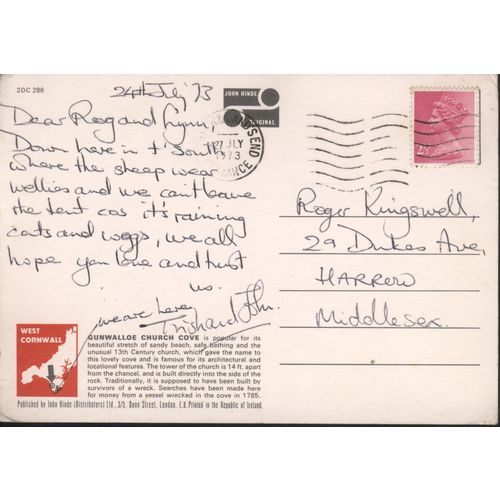 2DC 286
24th July '73
JOHN HINDE
ORIGINAL
Dear Rog and Lynn,
Down here in t' South
where the sheep wear
wellies and we can't leave
the tent cos it's raining
cats and woggs, we all
hope you love and trust
us.
27 JLY
1973
2½
Roger Kingswell,
29 Dukes Ave,
HARROW
Middlesex.
we are here
Trish and John.
WEST
CORNWALL
GUNWALLOE CHURCH COVE is popular for its
beautiful stretch of sandy beach, safe bathing and the
unusual 13th Century church, which gave the name to
this lovely cove and is famous for its architectural and
locational features. The tower of the church is 14 ft. apart
from the chancel, and is built directly into the side of the
rock. Traditionally, it is supposed to have been built by
survivors of a wreck. Searches have been made here
for money from a vessel wrecked in the cove in 1785.
Published by John Hinde (Distributors) Ltd., 3/5, Dunn Street, London. E.8. Printed in the Republic of Ireland.